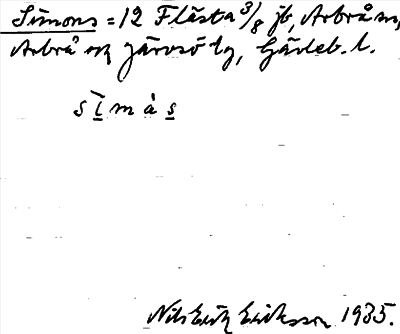 Simons = 12 Flästa 3/8 jb, Arbrå sn,
Arbrå och Järvsö tg, Gävleb. l.
s ī m à s
Nils Erik Eriksson 1935.